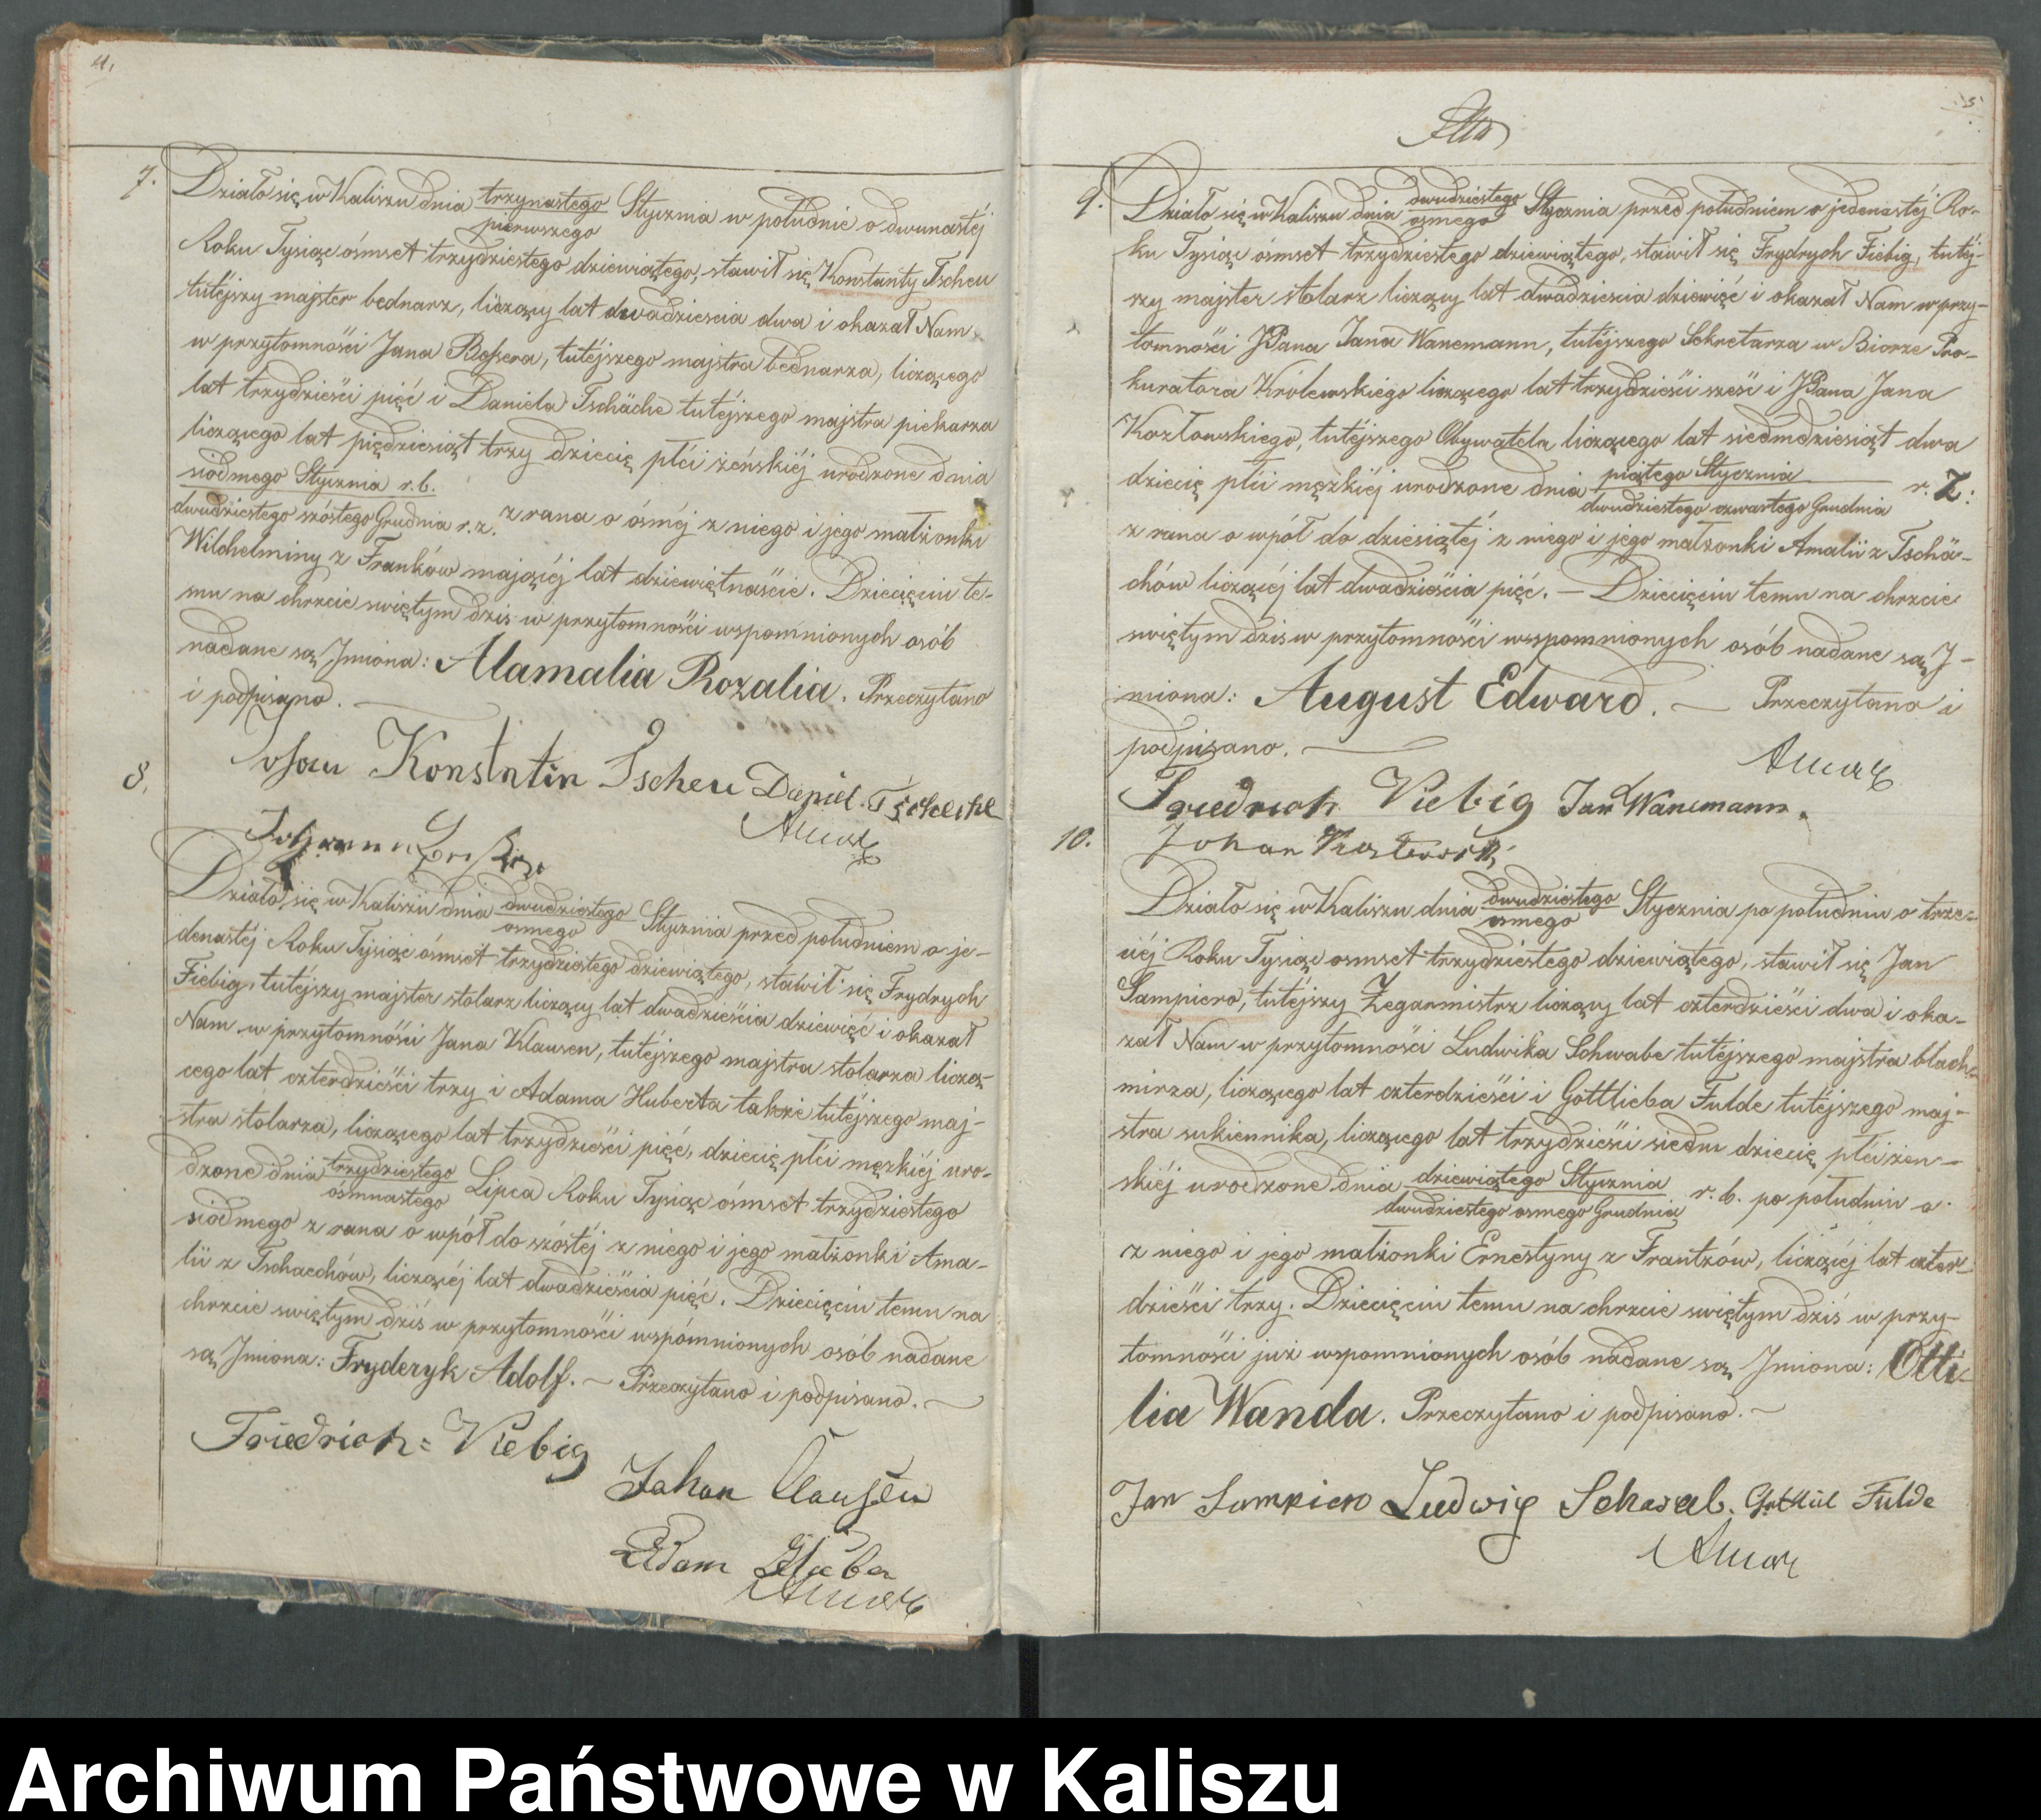 4.
7.
Działo się w Kaliszu dnia trzynastego Stycznia w południe o dwunastéj
pierwszego
Roku Tysiąc ośmset trzydziestego dziewiątego, stawił się Konstanty Tscheu
tutéjszy majster bednarz, liczący lat dwadzieścia dwa i okazał Nam
w przytomności Jana Boſsera, tutéjszego majstra bednarza, liczącego
lat trzydzieści pięć i Daniela Tschäche tutéjszego majstra piekarza
liczącego lat pięćdziesiąt trzy dziecię płći żeńskiéj urodzone dnia
siódmego Stycznia r. b.
dwudziestego szóstego Grudnia r. z. z rana o ósméj z niego i jego małżonki
Wilchelminy z Franków mającéj lat dziewiętnaście. Dziecięciu te-
mu na chrzcie swiętym dzis w przytomności wspomnionych osób
nadane są Jmiona: Alamalia Rozalia. Przeczytano
i podpisano.
Konstntin Tscheu Daniel
8.
Działo się w Kaliszu dnia dwudziestego Stycznia przed południem o je-
osmego
denastéj Roku Tysiąc ośmset trzydziestego dziewiątego, stawił się Frydrych
Fiebig, tutéjszy majster stolarz liczący lat dwadzieścia dziewięć i okazał
Nam w przytomności Jana Klausen, tutéjszego majstra stolarza liczą-
cego lat czterdzieści trzy i Adama Huberta także tutéjszego maj-
stra stolarza, liczącego lat trzydzieści pięć, dziecię płći męzkiéj uro-
dzone dnia trzydziestego Lipca Roku Tysiąc ośmset trzydziestego
ośmnastego
siódmego z rana o wpół do szóstéj z niego i jego małżonki Ama-
lii z Tschaechów, liczącéj lat dwadzieścia pięć. Dziecięciu temu na
chrzcie swiętym dziś w przytomności wspómnionych osób nadane
są Jmiona: Fryderyk Adolf. — Przeczytano i podpisano. —
Friedrich = Viebig
Johan Clausen
Adam
5
9.
Działo się w Kaliszu dnia dwudziestego Stycznia przed południem o jedenastéj Ro-
osmego
ku Tysiąc ósmset trzydziestego dziewiątego, stawił się Frydrych Fiebig, tutéj-
szy majster stolarz liczący lat dwadzieścia dziewięć i okazał Nam w przy-
tomności JPana Jana Wanemann, tutéjszego Sekretarza w Biorze Pro-
kuratora Królewskiego liczącego lat trzydzieści sześć i JPana Jana
Kozłowskiego, tutéjszego Obywatela liczącego lat siedmdziesiąt dwa
dziecię płci męzkiéj urodzone dnia piątego Stycznia r. Z:
dwudziestego czwartego Grudnia
z rana o wpół do dziesiątéj z niego i jego małżonki Amalii z Tschä-
chów liczącéj lat dwadzieścia pięć. — Dziecięciu temu na chrzcie
swiętym dzis w przytomności wsspomnionych osób nadane są J-
miona: August Edward. — Przeczytano i
podpisano. —
Friedrich Viebig Jan Wanemann.
10.
Johan
Działo się w Kaliszu dnia dwudziestego Stycznia po południu o trze-
osmego
ciéj Roku Tysiąc osmset trzydziestego dziewiątego, stawił się Jan
Sampiero, tutéjszy Zegarmistrz liczący lat czterdzieści dwa i oka-
zał Nam w przytomności Ludwika Schwabe tutéjszego majstra blach-
mirza, liczącego lat czterdzieści i Gottlieba Fulde tutéjszego maj-
stra sukiennika, liczącego lat trzydzieści siedm dziecię płci żen-
skiéj urodzone dnia dziewiątego Stycznia r. b. po południu o
dwudziestego osmego Grudnia
z niego i jego małżonki Ernestyny z Frantzów, liczącéj lat czter-
dzieści trzy. Dziecięciu temu na chrzcie swiętym dziś w przy-
tomności już wspomnionych osób nadane są Jmiona: Otti-
lia Wanda. Przeczytano i podpisano. —
Jan Sampiero Ludwig Schwab. Gottlieb Fulde
Archiwum Państwowe w Kaliszu